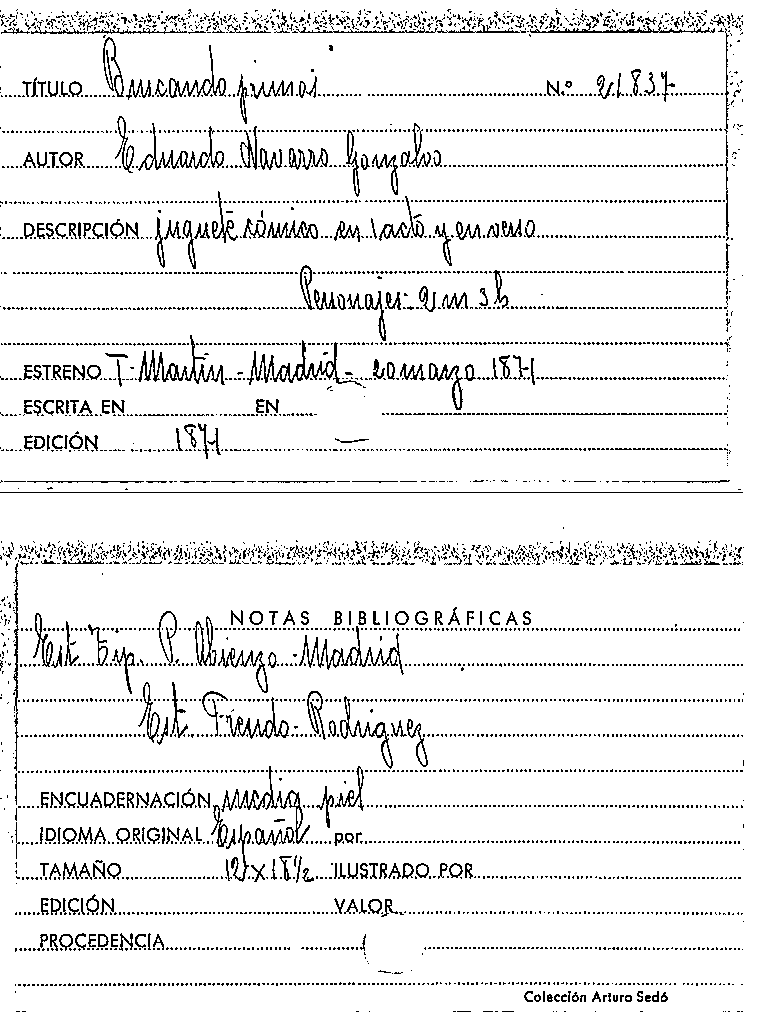 TÍTULO Buscando primos N.º 21837
AUTOR Eduardo Navarro Gonzalvo
DESCRIPCIÓN juguete cómico en 1 acto y en verso
Personajes - 2 m 3 h
ESTRENO T. Martín - Madrid - 20 marzo 1871
ESCRITA EN EN
EDICIÓN 1871
NOTAS BIBLIOGRÁFICAS
Est. Tip. P. Abienzo - Madrid
Est. - Rodriguez
ENCUADERNACIÓN media piel
IDIOMA ORIGINAL Español por
TAMAÑO 12 x 18 1/2 ILUSTRADO POR
EDICIÓN VALOR
PROCEDENCIA
Colección Arturo Sedó